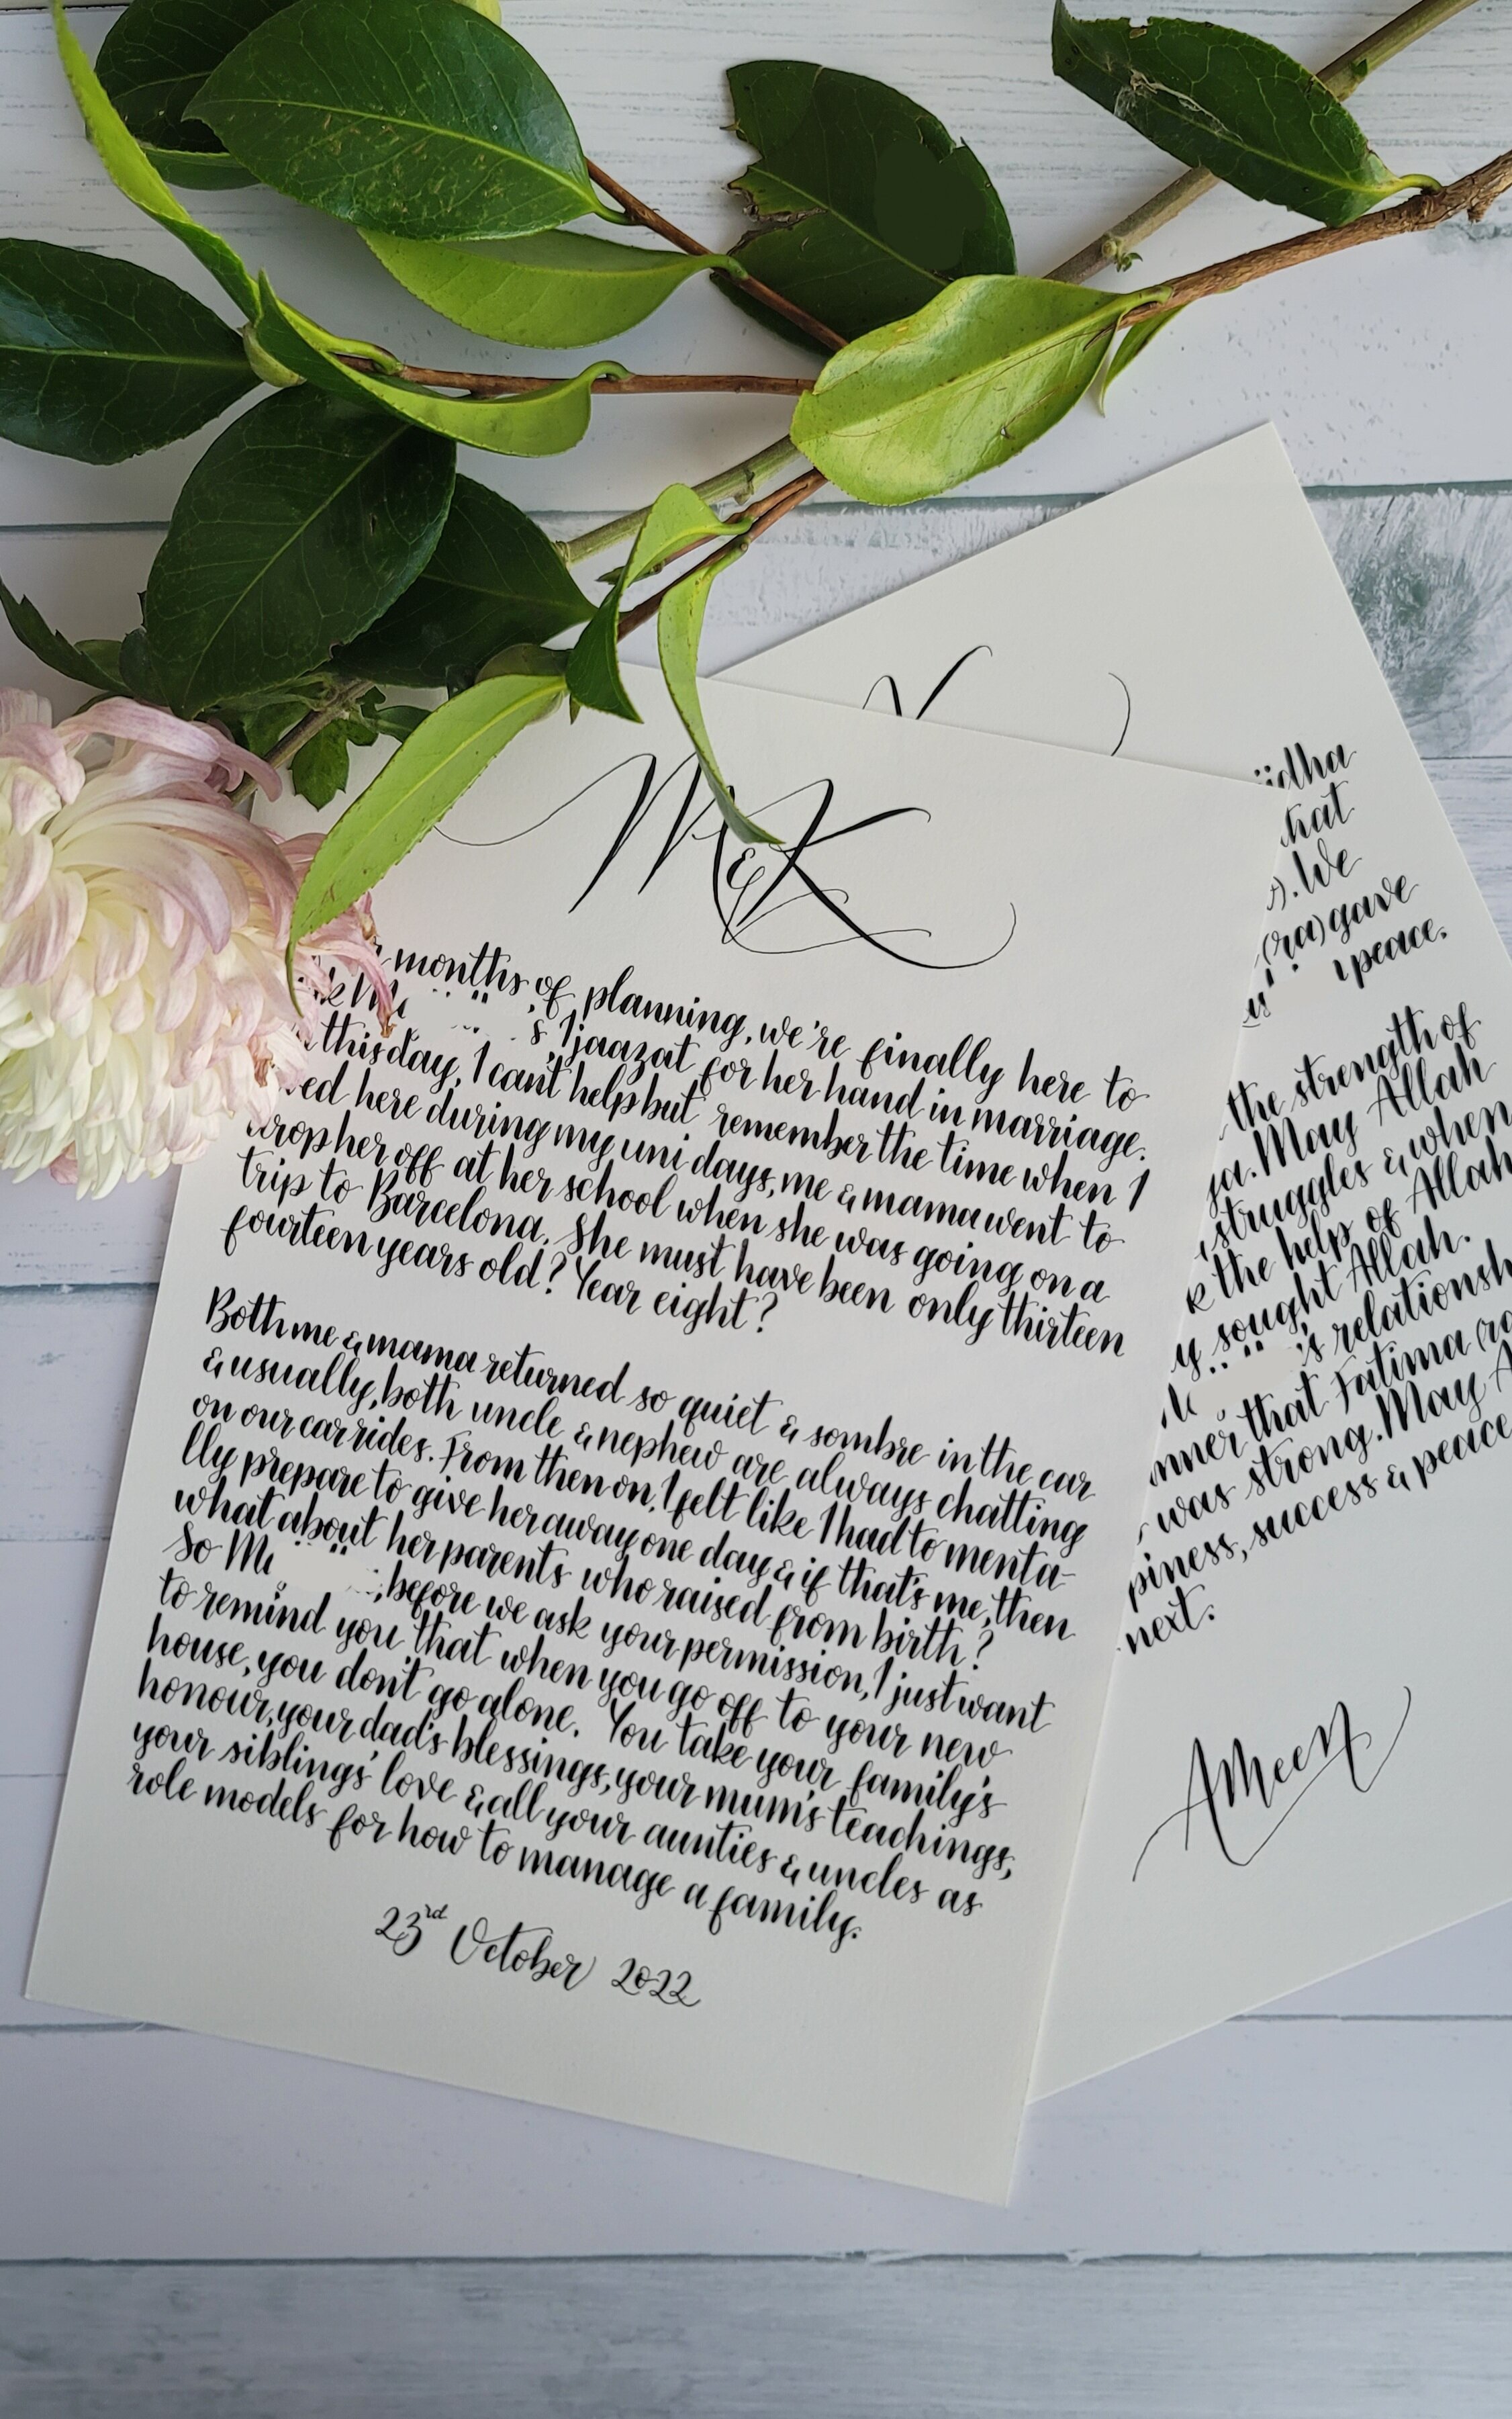 M&K
months of planning, we're finally here to
's Ijaazat for her hand in marriage.
this day, I can't help but remember the time when I
here during my uni days, me & mama went to
drop her off at her school when she was going on a
trip to Barcelona. She must have been only thirteen
fourteen years old? Year eight?
Both me & mama returned so quiet & sombre in the car
& usually, both uncle & nephew are always chatting
on our car rides. From then on, I felt like I had to menta-
lly prepare to give her away one day & if that's me, then
what about her parents who raised from birth?
So before we ask your permission, I just want
to remind you that when you go off to your new
house, you don't go alone. You take your family's
honour, your dad's blessings, your mum's teachings,
your siblings' love & all your aunties & uncles as
role models for how to manage a family.
23rd October 2022
We
(ra) gave
peace.
the strength of
May Allah
struggles & when
the help of Allah
sought Allah.
's
that Fatima
was strong. May
success & peace
next.
Ameen